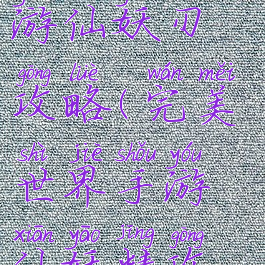 游仙妖刃
gōng lüè wán měi
攻略(完美
shì jiè shǒu yóu
世界手游
xiān yāo jīng gōng